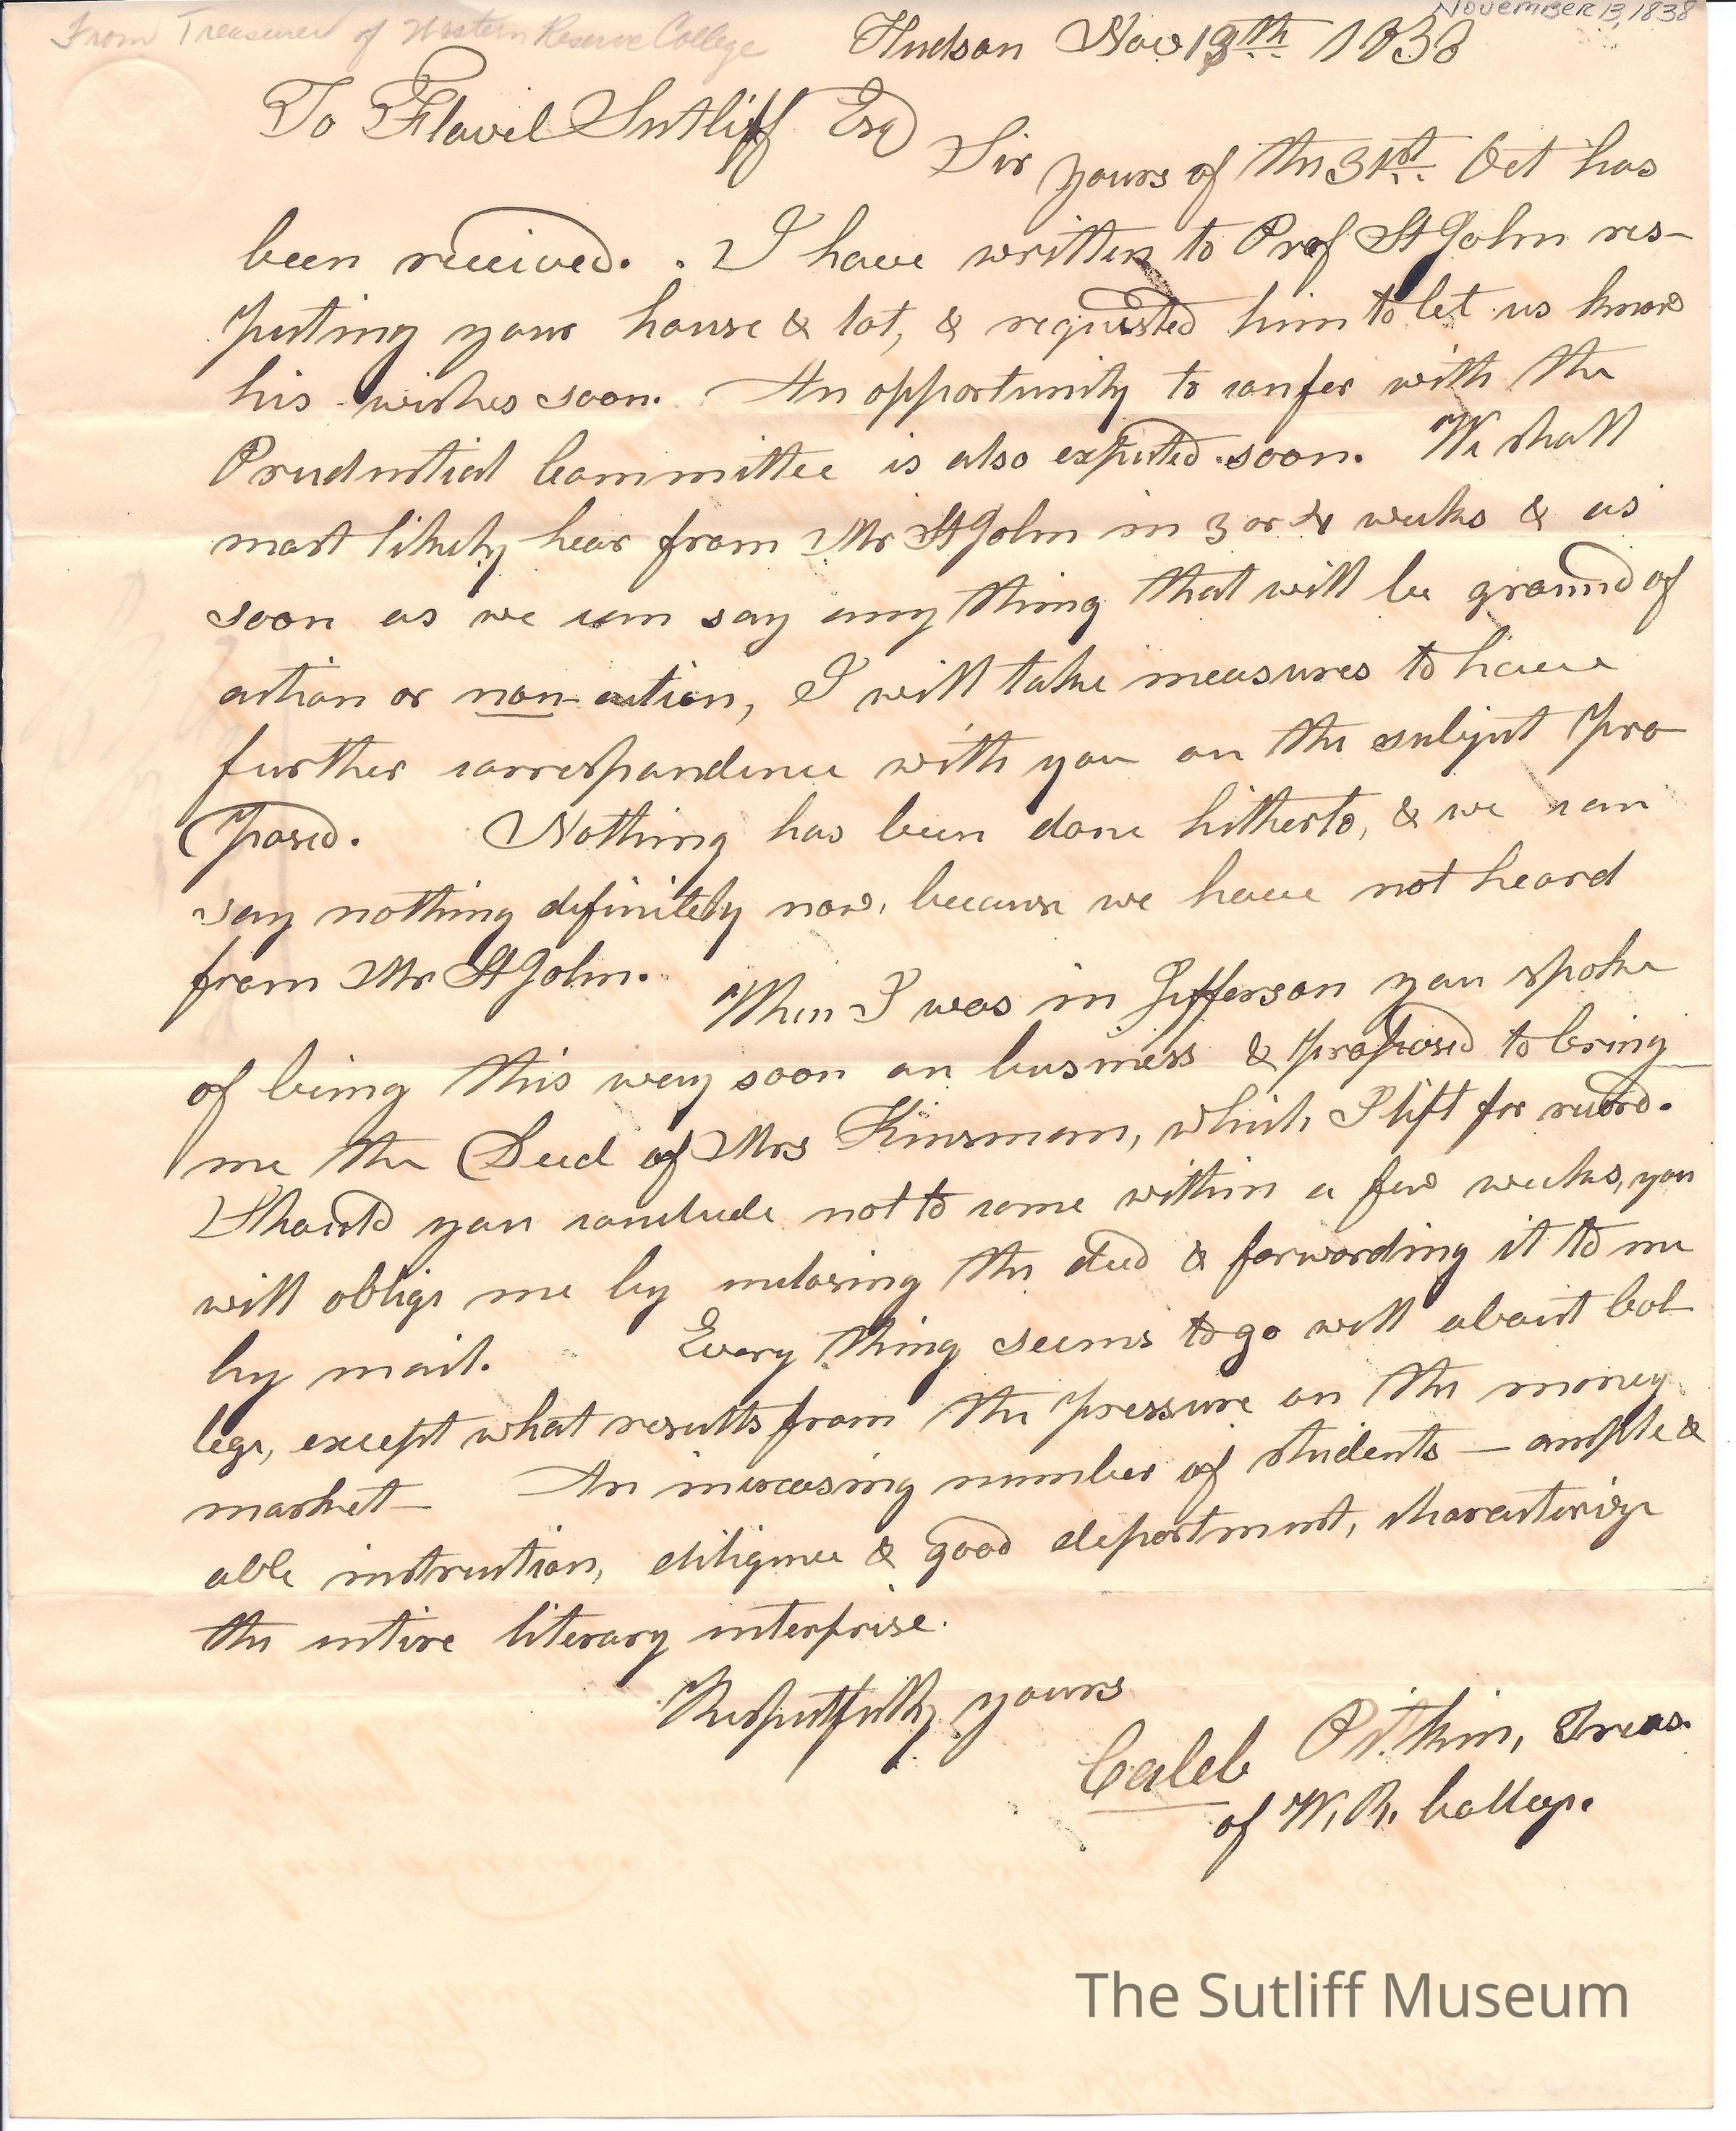 November 13, 1838
From Treasurer of Western Reserve College
Hudson Nov 13th 1838
To Flavel Sutliff Esq
Sir yours of the 31st. Oct has
been received. . I have written to Prof St John res-
pecting your house & lot, & requested him to let us know
his wishes soon. An opportunity to confer with the
Prudential Committee is also expected soon. We shall
most likely hear from Mr St John in 3 or 4 weeks & as
soon as we can say any thing that will be ground of
action or non-action, I will take measures to have
further correspondence with you on the subject pro
posed. Nothing has been done hitherto, & we can
say nothing definitely now, because we have not heard
from Mr St John. When I was in Jefferson you spoke
of being this way soon on business & proposed to bring
me the Deed of Mrs Kinsman, which I left for record.
Should you conclude not to come within a few weeks, you
will oblige me by inclosing the deed & forwarding it to me
by mail. Every thing seems to go well about Col
lege, except what results from the pressure on the money
market - An increasing number of students - ample &
able instruction, diligence & good deportment, characterize
the entire literary interprise.
Respectfully yours
Caleb Pitkin, Treas.
of W. R. College.
The Sutliff Museum